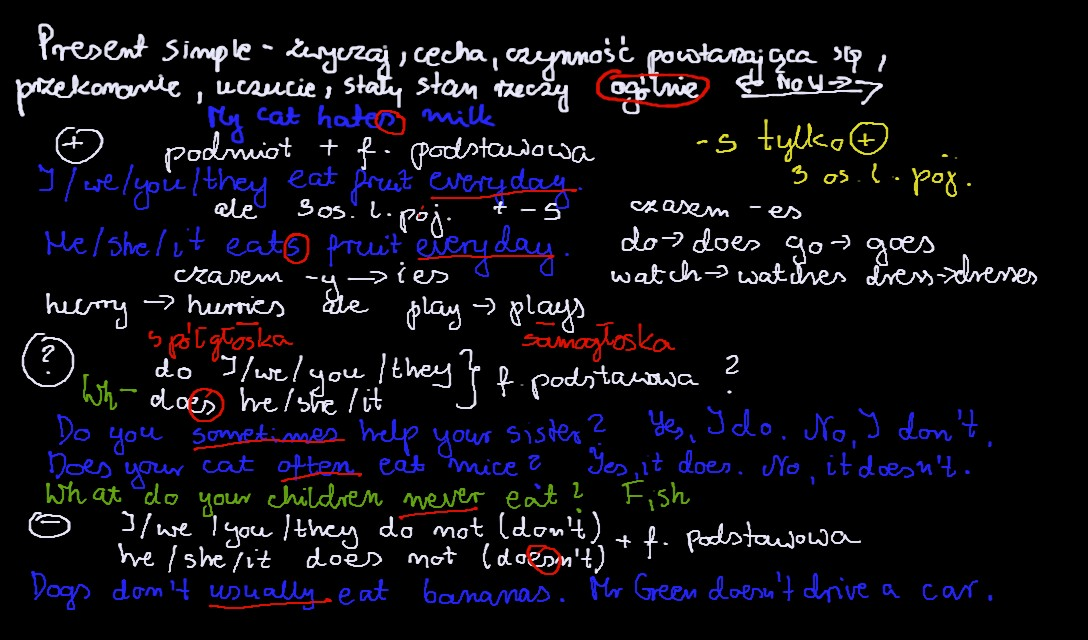 Present simple - zwyczaj, cecha, czynność powtarzająca się,
przekonanie, uczucie, stały stan rzeczy ogólnie <- now ->
My cat hates milk
+ podmiot + f. podstawowa -s tylko +
I/we/you/they eat fruit everyday. 3 os. l. poj.
ale 3 os. l. poj. + -s czasem -es
He/she/it eats fruit everyday. do → does go → goes
czasem -y → ies watch → watches dress → dresses
hurry → hurries ale play → plays
spółgłoska samogłoska
? do I/we/you/they } f. podstawowa ?
Wh- does he/she/it
Do you sometimes help your sister? Yes, I do. No, I don't.
Does your cat often eat mice? Yes, it does. No, it doesn't.
What do your children never eat? Fish
- I/we/you/they do not (don't) + f. podstawowa
he/she/it does not (doesn't)
Dogs don't usually eat bananas. Mr Green doesn't drive a car.